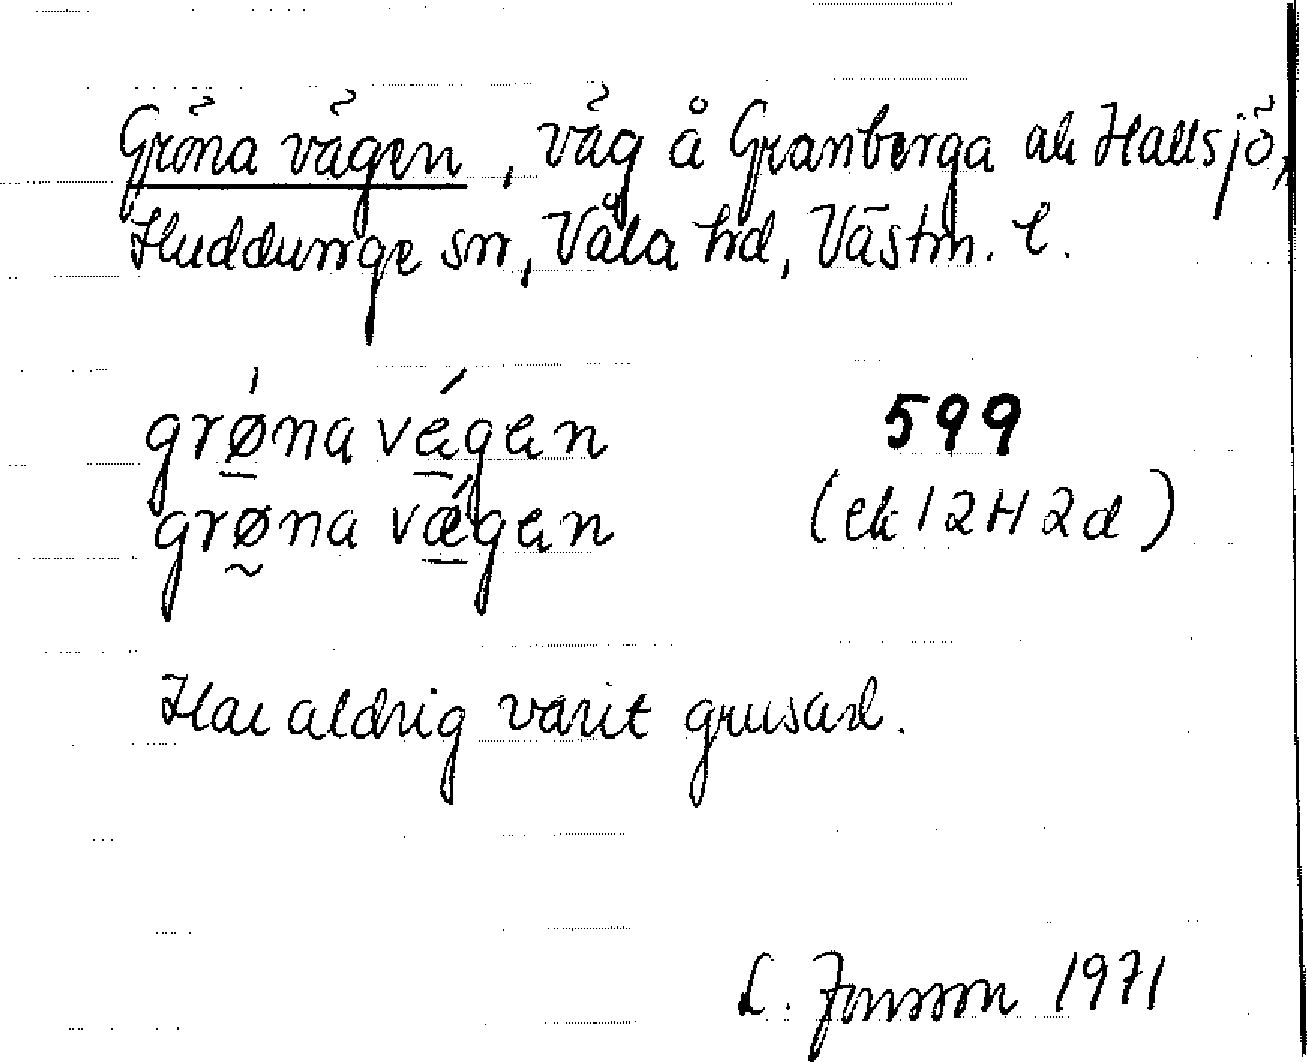 Gröna vägen, väg å Granberga ak Hallsjö,
Huddunge sn, Våla hd, Västm. l.
grǿ̱na vé̱gen 599
grø̰na vǽ̱gen (ek 12H2d)
Har aldrig varit grusad.
L. Jonsson 1971